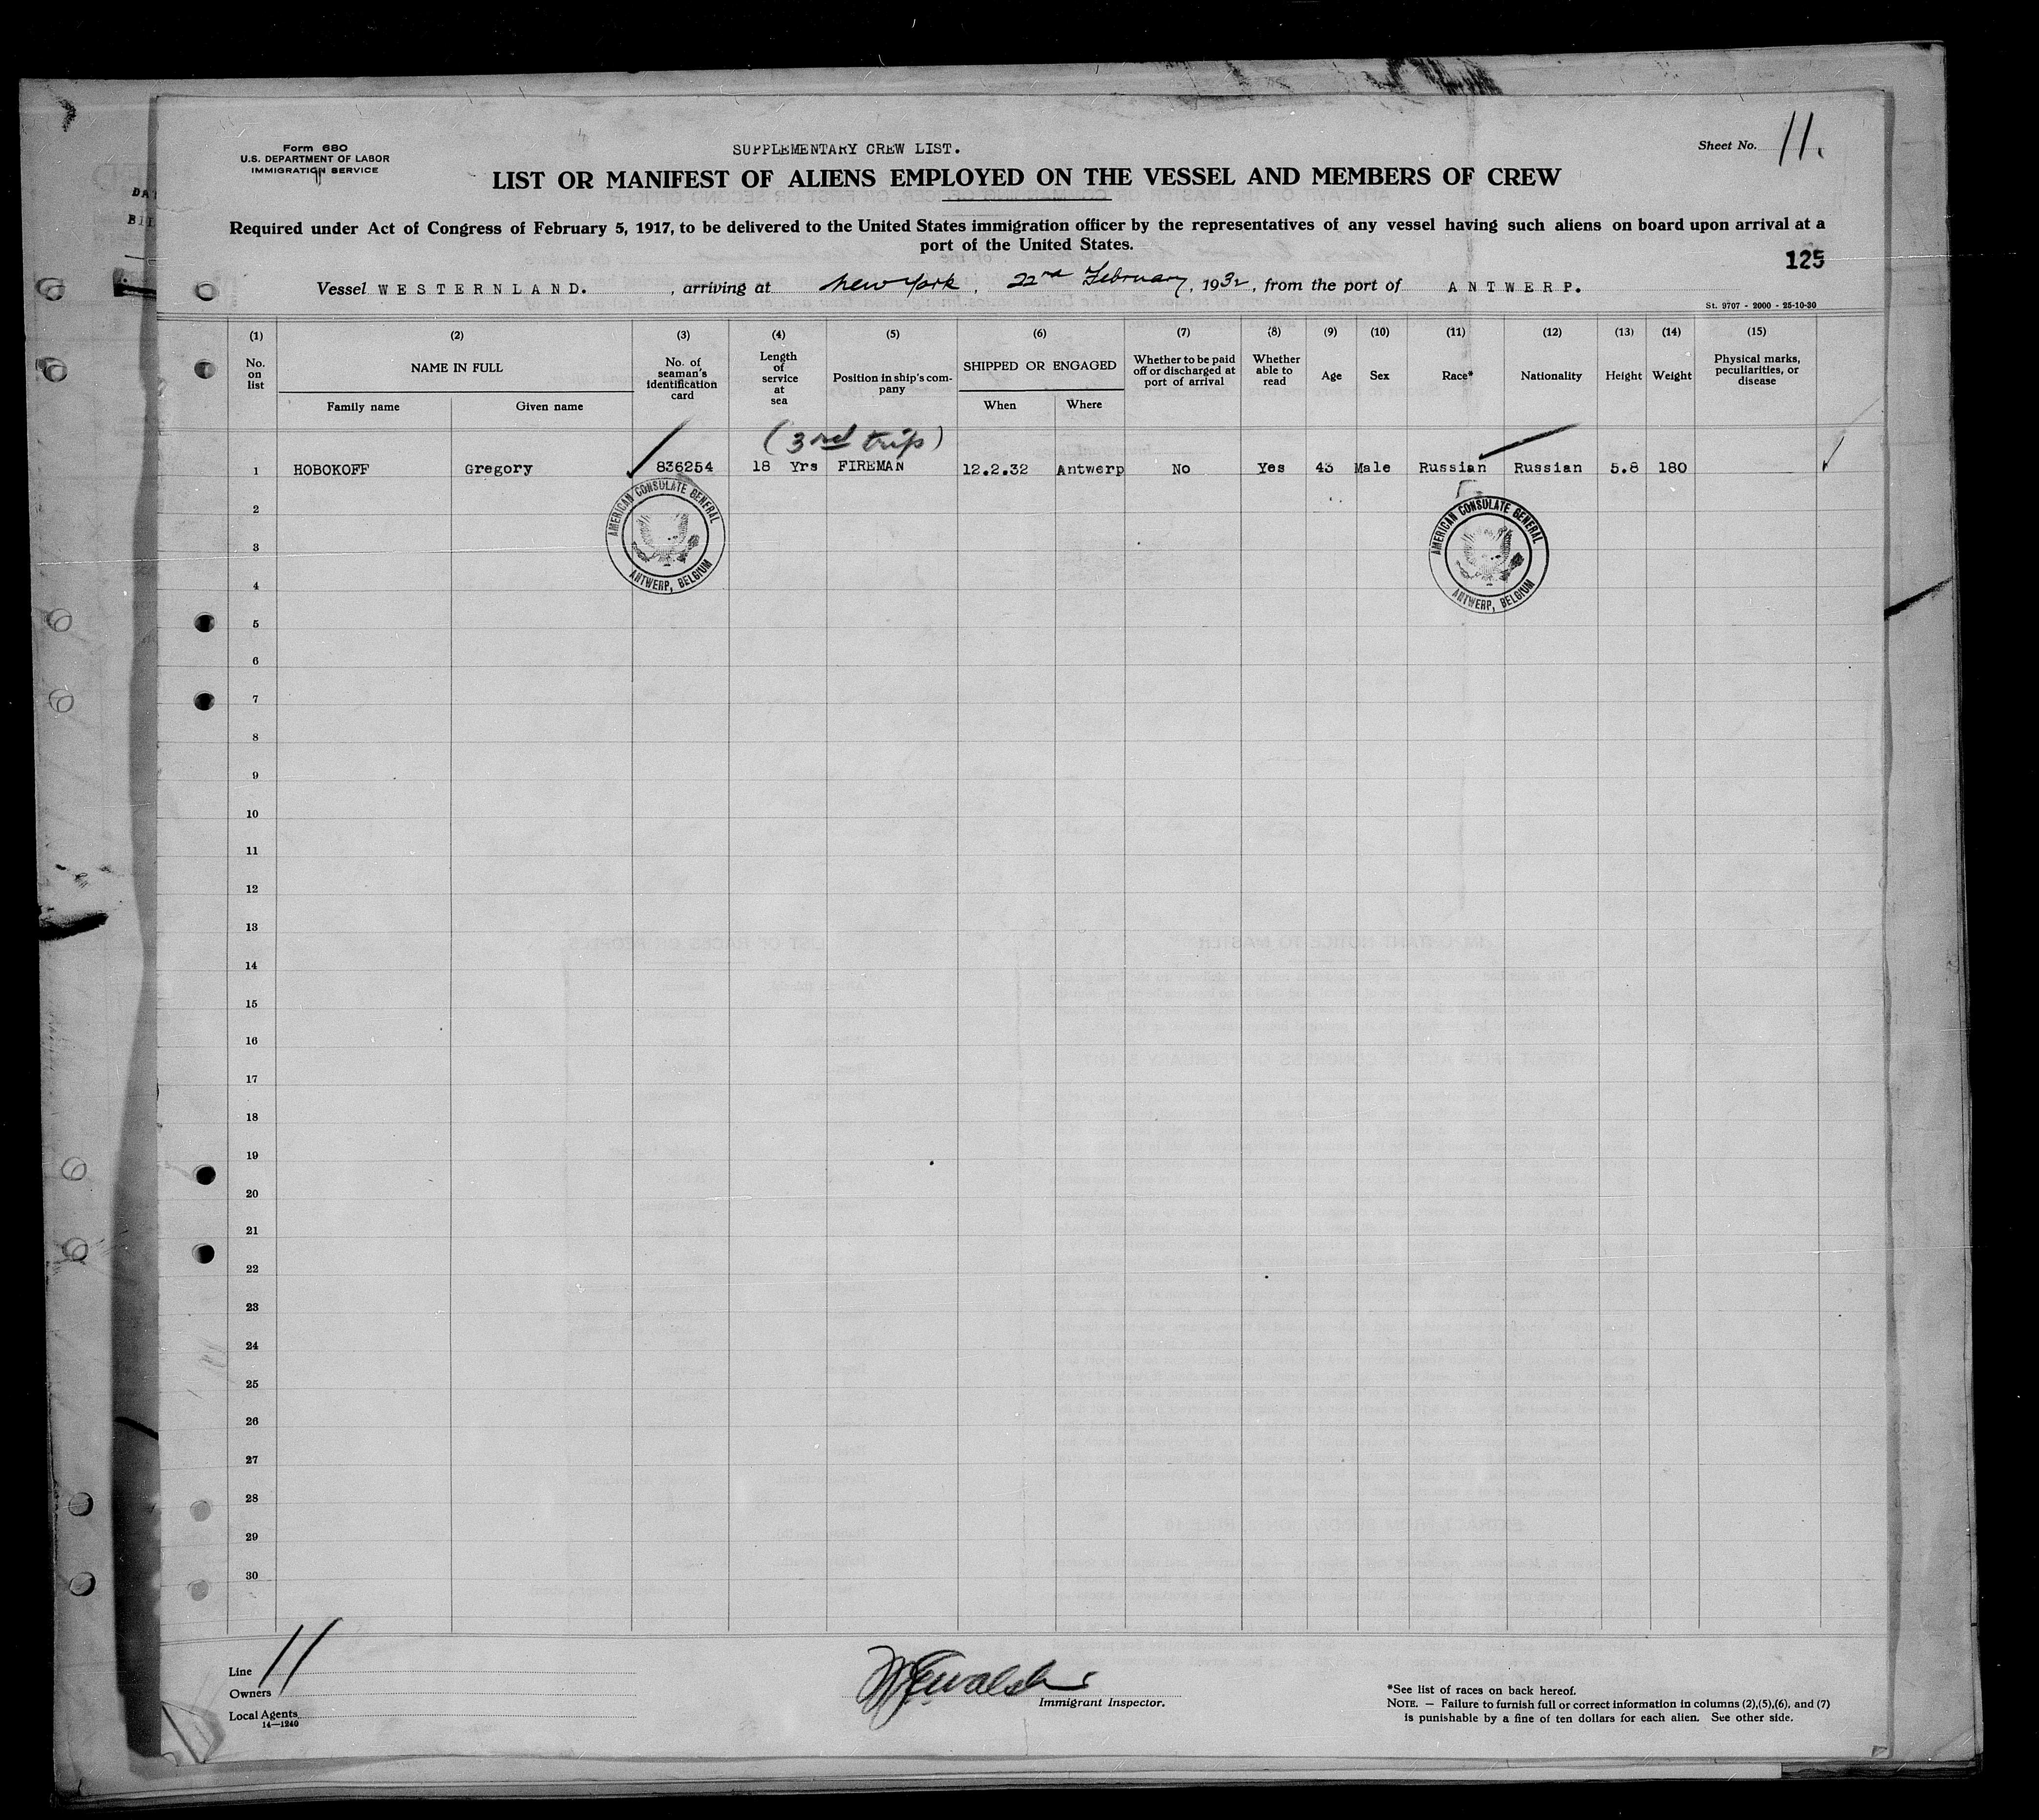 Form 680
U.S. DEPARTMENT OF LABOR
IMMIGRATION SERVICE
SUPPLEMENTARY CREW LIST.
Sheet No. 11.
LIST OR MANIFEST OF ALIENS EMPLOYED ON THE VESSEL AND MEMBERS OF CREW
Required under Act of Congress of February 5, 1917, to be delivered to the United States immigration officer by the representatives of any vessel having such aliens on board upon arrival at a
port of the United States.
125
Vessel WESTERNLAND. , arriving at New York , 22nd February, 1932, from the port of ANTWERP.
St. 9707 - 2000 - 25-10-30
(1) (2) (3) (4) (5) (6) (7) (8) (9) (10) (11) (12) (13) (14) (15)
No. on list
NAME IN FULL
Family name Given name
No. of seaman's identification card
Length of service at sea
Position in ship's company
SHIPPED OR ENGAGED
When Where
Whether to be paid off or discharged at port of arrival
Whether able to read
Age
Sex
Race*
Nationality
Height
Weight
Physical marks, peculiarities, or disease
(3rd trip)
1 HOBOKOFF Gregory 836254 18 Yrs FIREMAN 12.2.32 Antwerp No Yes 43 Male Russian Russian 5.8 180
AMERICAN CONSULATE GENERAL
ANTWERP, BELGIUM
AMERICAN CONSULATE GENERAL
ANTWERP, BELGIUM
2
3
4
5
6
7
8
9
10
11
12
13
14
15
16
17
18
19
20
21
22
23
24
25
26
27
28
29
30
11
Line
Owners
Local Agents
14—1240
Immigrant Inspector.
*See list of races on back hereof.
NOTE. — Failure to furnish full or correct information in columns (2),(5),(6), and (7)
is punishable by a fine of ten dollars for each alien. See other side.